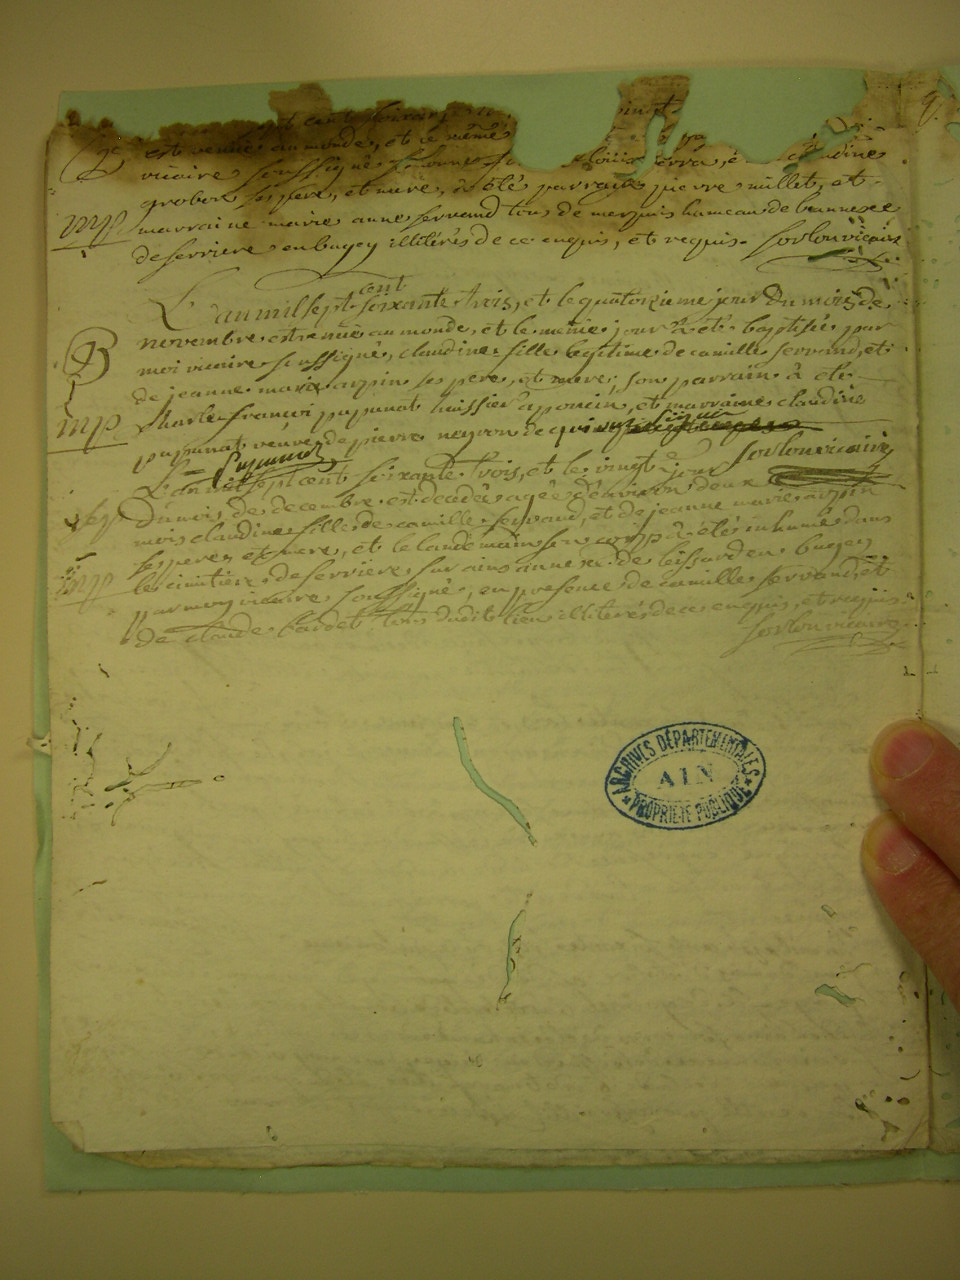 9.
vingt
est venue au monde, et le même
vicaire soussigné
grobon ses pere, et mere, a été parrain pierre millet, et
mp marraine marie anne servand tous de merpuis hameau de bennonce
de serriere en bugey illitérés de ce enquis, et requis. Sorlon vicaire
L'an mil sept cent soixante trois, et le quatorzieme jour du mois de
B novembre est née au monde, et le même jour a été baptisée par
moi vicaire soussigné, claudine fille legitime de camille servand, et
de jeanne marie arpin ses pere, et mere; son parrain à été
mp charle françoi pupunat huissier a poncin, et marraine claudine
pupunat veuve de pierre neyron de
Pupunat Sorlon vicaire
L'an mil sept cent soixante trois, et le vingt jour
sep du mois de decembre est decedée agée d'environ deux
mois claudine fille de camille servand, et de jeanne marie arpin
ses pere, et mere, et le landemain son corps a été inhumé dans
mp le cimitiere de serriere sur ains annexe de leissard en bugey
par moy vicaire soussigné, en presence de camille servand, et
de claude bardet tous dudit lieu illitérés de ce enquis, et requis
Sorlon vicaire
ARCHIVES DÉPARTEMENTALES
AIN
PROPRIÉTÉ PUBLIQUE